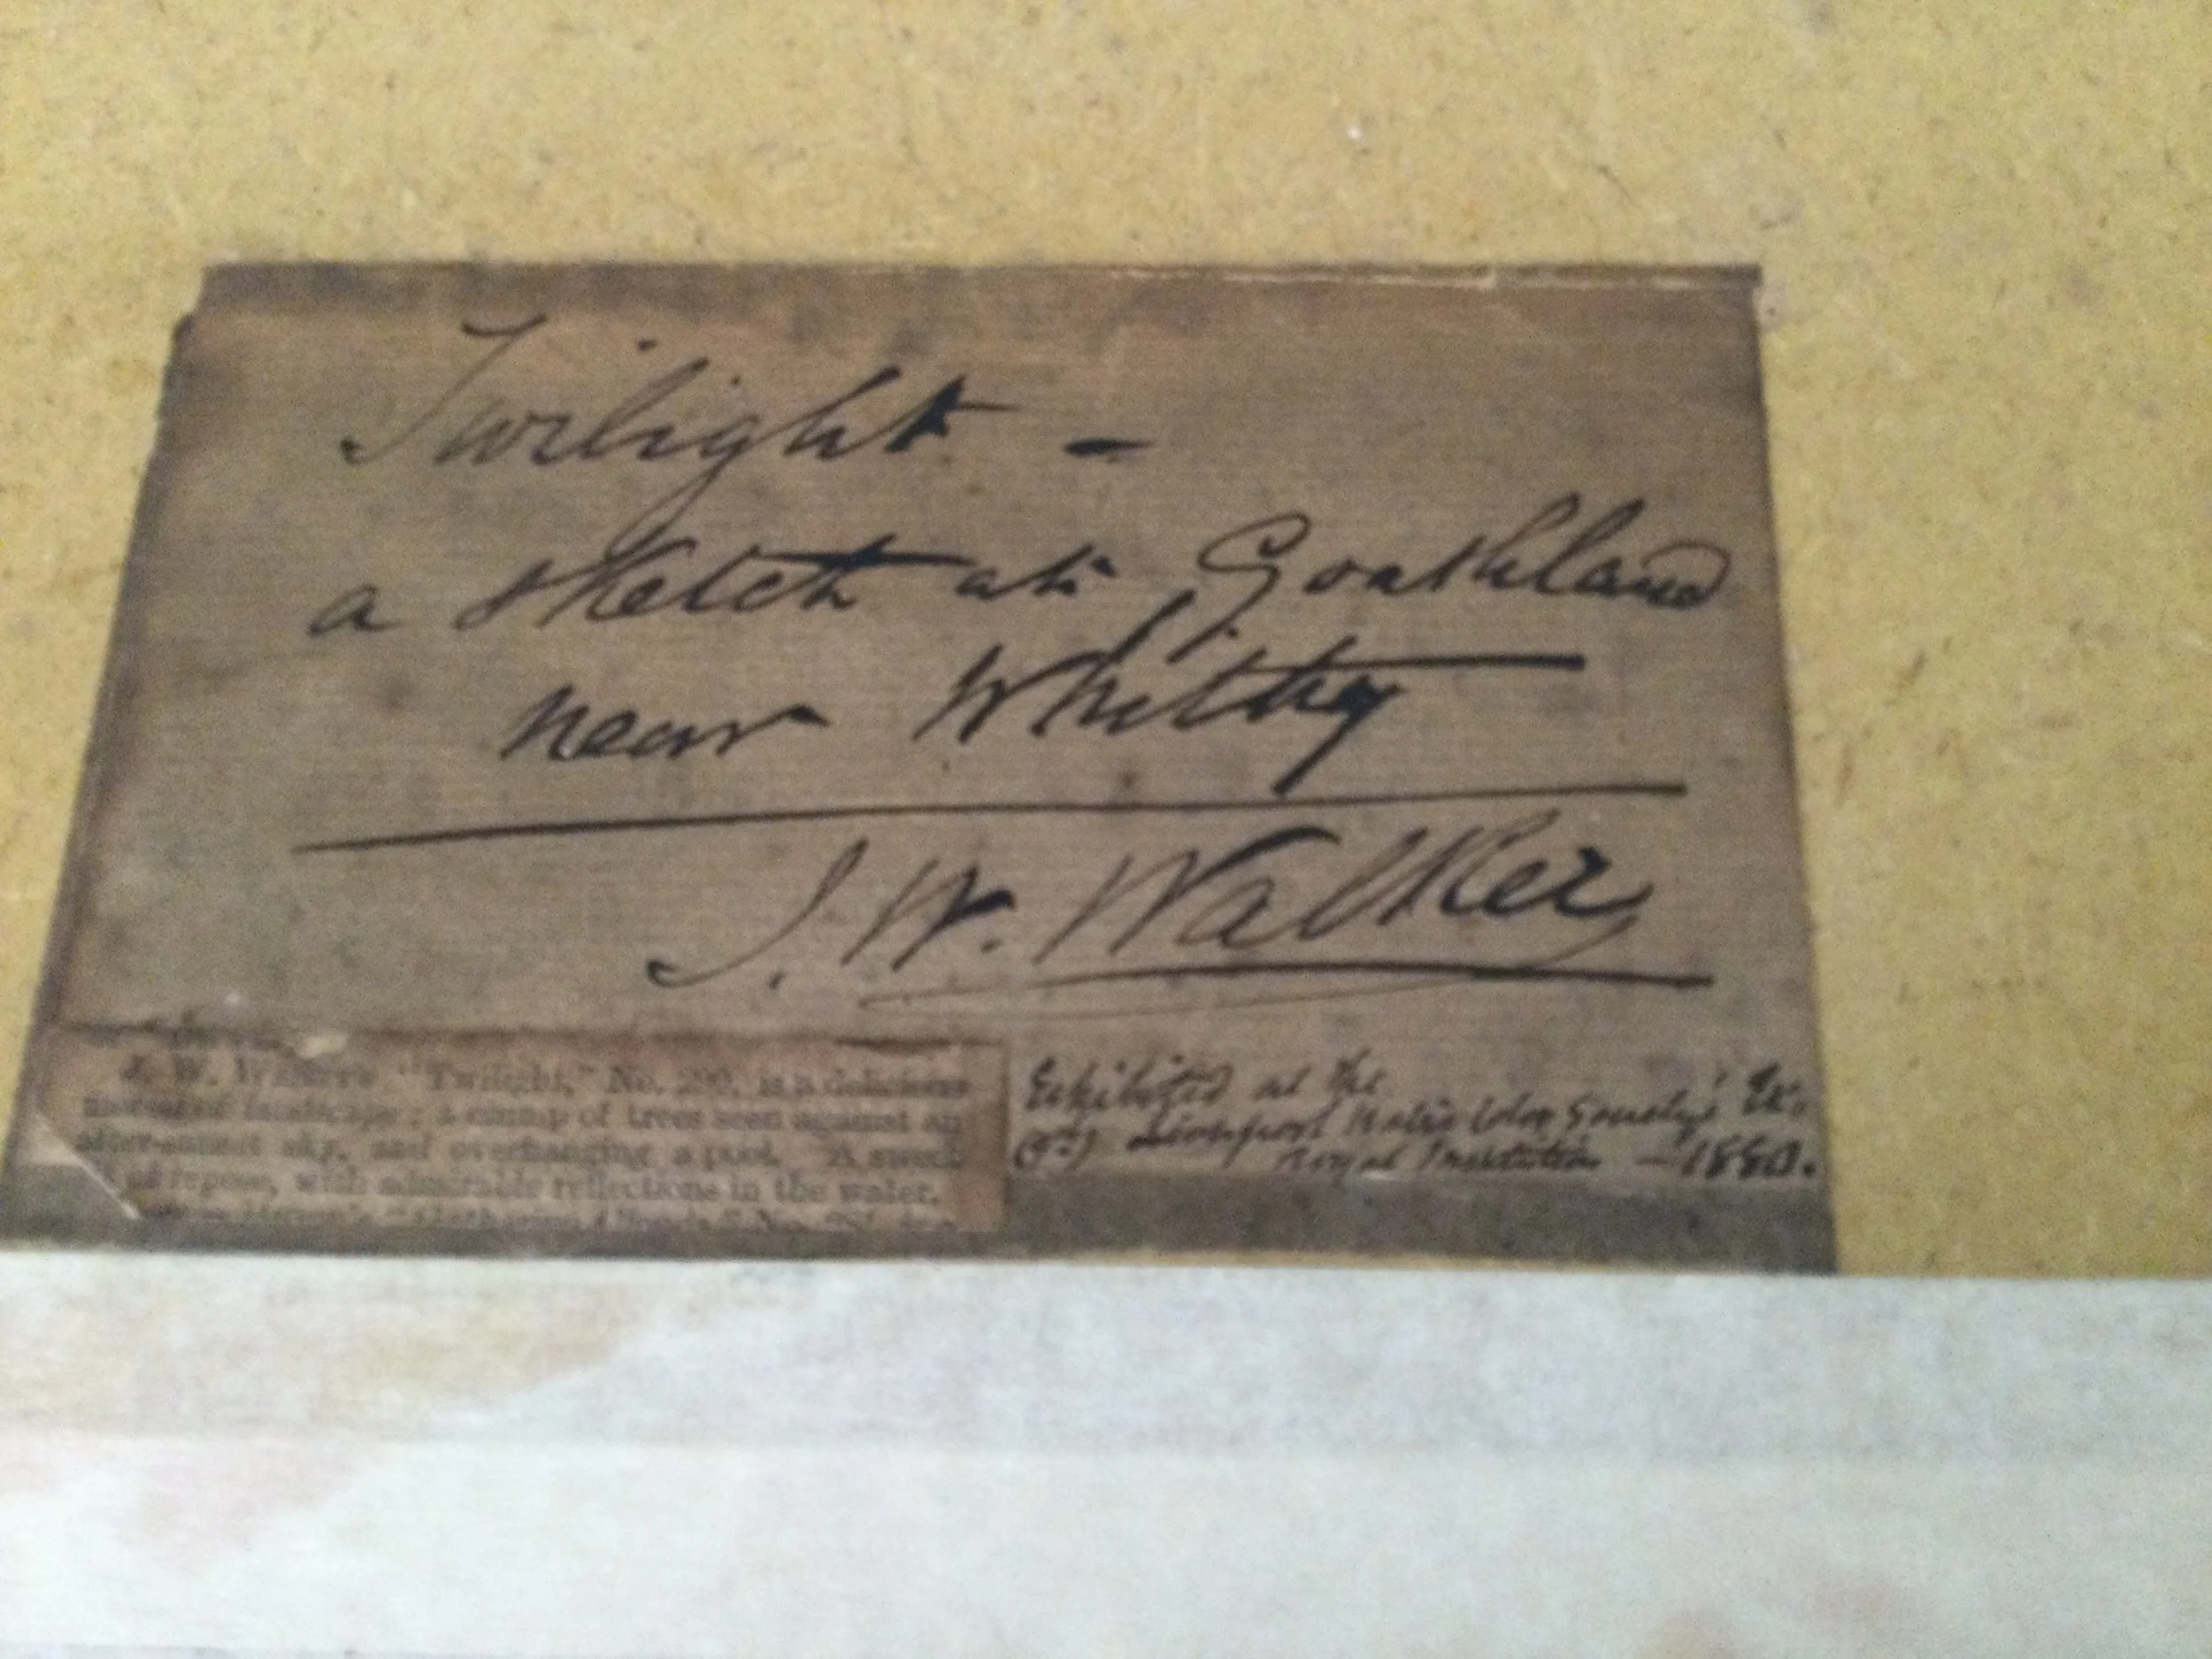 Twilight -
a sketch at Goathland
near Whitby
J. W. Walker
J. W. Walker's "Twilight," No. is a delicious
of landscape; a clump of trees seen against an
after-sunset sky, and overhanging a pool. A sweet
of repose, with admirable reflections in the water.
Exhibited at the
Liverpool Water Color Society's Ex.
Royal Institution - 1880.